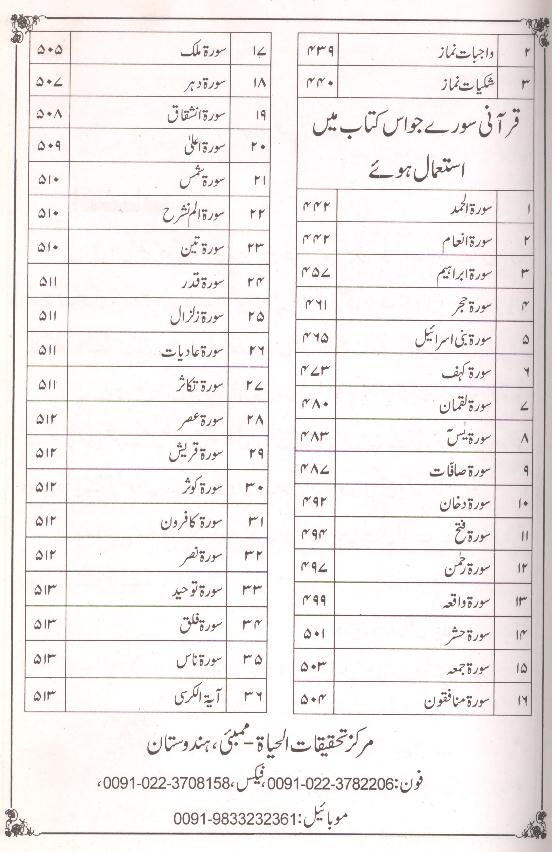 ۲ واجبات نماز ۴۳۹
۳ شکیات نماز ۴۴۰
قرآنی سورے جو اس کتاب میں
استعمال ہوئے
۱ سورۃ الحمد ۴۴۲
۲ سورۃ انعام ۴۴۲
۳ سورۃ ابراہیم ۴۵۷
۴ سورۃ حجر ۴۶۱
۵ سورۃ بنی اسرائیل ۴۶۵
۶ سورۃ کہف ۴۷۳
۷ سورۃ لقمان ۴۸۰
۸ سورۃ یٰسٓ ۴۸۳
۹ سورۃ صافات ۴۸۷
۱۰ سورۃ دخان ۴۹۲
۱۱ سورۃ فتح ۴۹۴
۱۲ سورۃ رحمٰن ۴۹۷
۱۳ سورۃ واقعہ ۴۹۹
۱۴ سورۃ حشر ۵۰۱
۱۵ سورۃ جمعہ ۵۰۳
۱۶ سورۃ منافقون ۵۰۴
۱۷ سورۃ ملک ۵۰۵
۱۸ سورۃ دہر ۵۰۷
۱۹ سورۃ انشقاق ۵۰۸
۲۰ سورۃ اعلیٰ ۵۰۹
۲۱ سورۃ شمس ۵۱۰
۲۲ سورۃ الم نشرح ۵۱۰
۲۳ سورۃ تین ۵۱۰
۲۴ سورۃ قدر ۵۱۱
۲۵ سورۃ زلزال ۵۱۱
۲۶ سورۃ عادیات ۵۱۱
۲۷ سورۃ تکاثر ۵۱۱
۲۸ سورۃ عصر ۵۱۲
۲۹ سورۃ قریش ۵۱۲
۳۰ سورۃ کوثر ۵۱۲
۳۱ سورۃ کافرون ۵۱۲
۳۲ سورۃ نصر ۵۱۲
۳۳ سورۃ توحید ۵۱۳
۳۴ سورۃ فلق ۵۱۳
۳۵ سورۃ ناس ۵۱۳
۳۶ آیۃ الکرسی ۵۱۳
مرکز تحقیقات الحیاۃ - ممبئی، ہندوستان
فون: 0091-022-3782206، فیکس، 0091-022-3708158،
موبائیل: 0091-9833232361